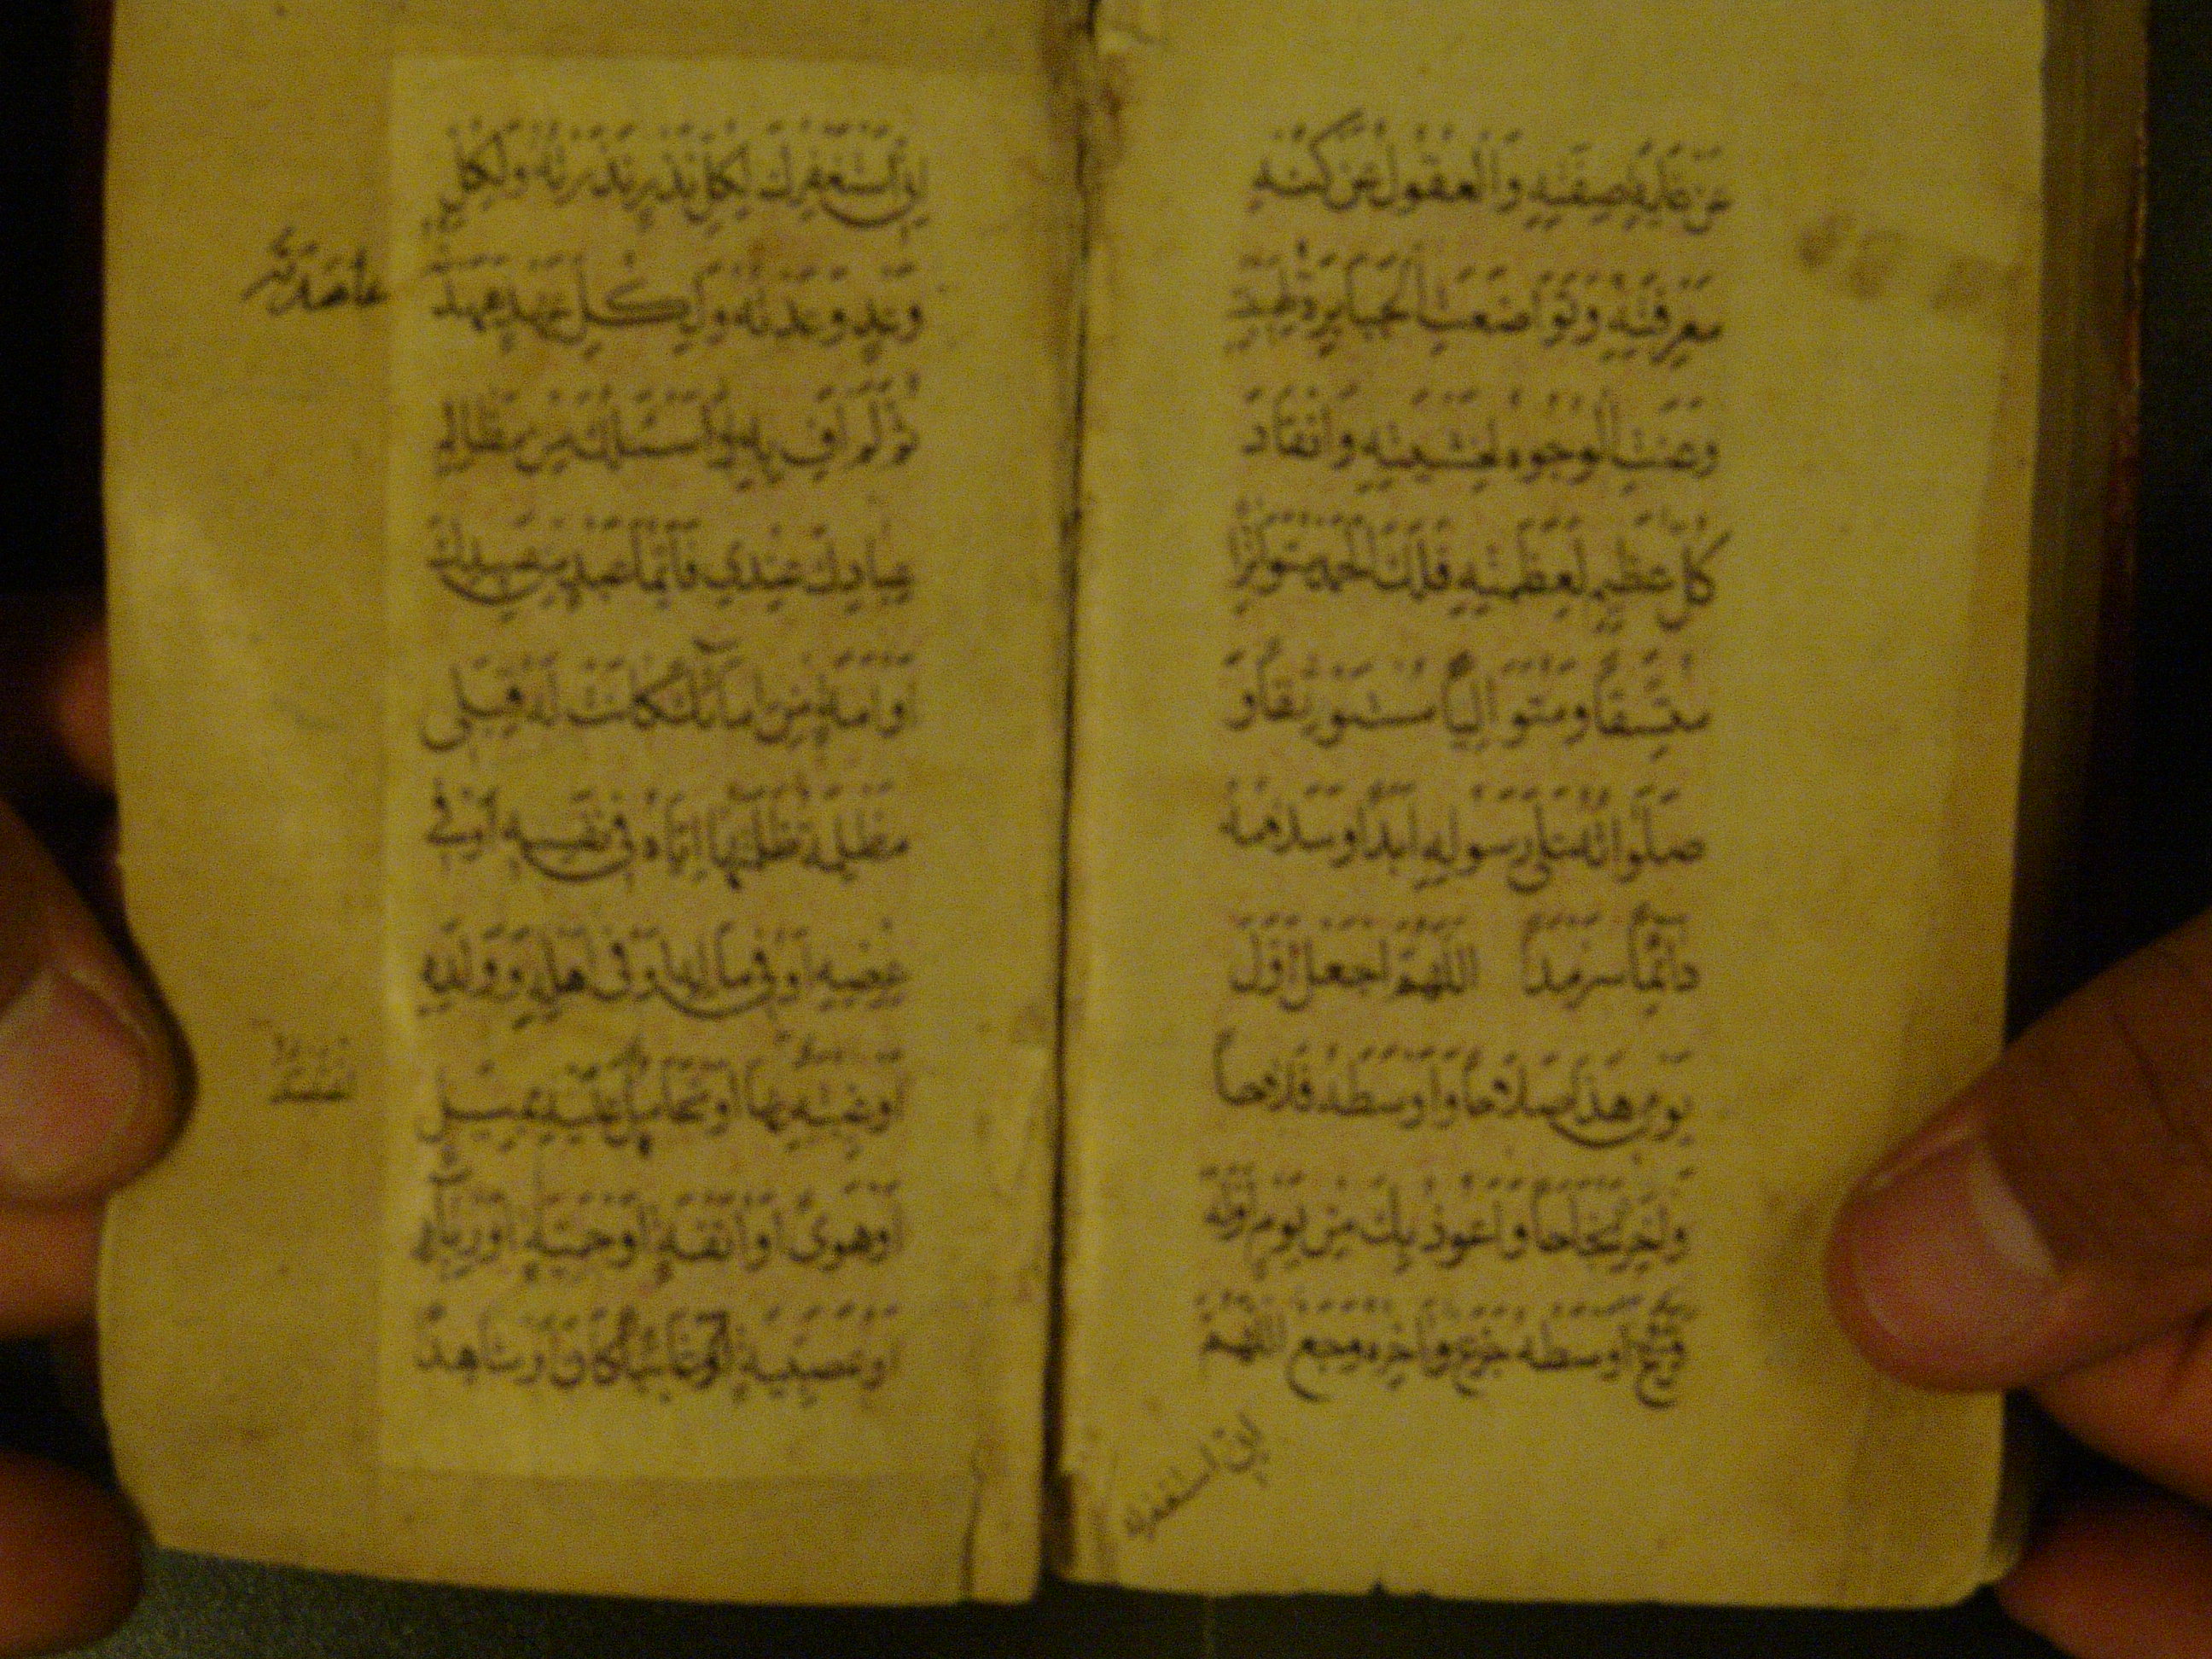 عَنْ غَايَةِ صِفَتِهِ وَالْعُقُولُ عَنْ كُنْهِ
مَعْرِفَتِهِ وَتَوَاضَعَتِ الْجَبَابِرَةُ لِهَيْبَتِهِ
وَعَنَتِ الْوُجُوهُ لِخَشْيَتِهِ وَانْقَادَ
كُلُّ عَظِيمٍ لِعَظَمَتِهِ فَلَكَ الْحَمْدُ مُتَوَاتِرًا
مُتَّسِقًا وَمُتَوَالِيًا مُسْتَوْثِقًا وَ
صَلَوَاتُهُ عَلَى رَسُولِهِ أَبَدًا وَسَلَامُهُ
دَائِمًا سَرْمَدًا اللَّهُمَّ اجْعَلْ أَوَّلَ
يَوْمِي هَذَا صَلَاحًا وَأَوْسَطَهُ فَلَاحًا
وَآخِرَهُ نَجَاحًا وَأَعُوذُ بِكَ مِنْ يَوْمٍ أَوَّلُهُ
فَزَعٌ وَأَوْسَطُهُ جَزَعٌ وَآخِرُهُ وَجَعٌ اللَّهُمَّ
إني أستغفرك
إِنِّي أَسْتَغْفِرُكَ لِكُلِّ نَذْرٍ نَذَرْتُهُ وَلِكُلِّ
وَعْدٍ وَعَدْتُهُ وَلِكُلِّ عَهْدٍ عَهِدْتُهُ
عَاهَدْتُهُ
ثُمَّ لَمْ أَفِ بِهِ وَأَسْئَلُكَ مِنْ مَظَالِمِ
عِبَادِكَ عِنْدِي فَأَيُّمَا عَبْدٍ مِنْ عَبِيدِكَ
أَوْ أَمَةٍ مِنْ إِمَائِكَ كَانَتْ لَهُ قِبَلِي
مَظْلِمَةٌ ظَلَمْتُهَا إِيَّاهُ فِي نَفْسِهِ أَوْ فِي
عِرْضِهِ أَوْ فِي مَالِهِ أَوْ فِي أَهْلِهِ وَوَلَدِهِ
أَوْ غِيبَةٍ بِهَا أَوْ تَحَامُلٍ عَلَيْهِ بِمَيْلٍ
أَوْ هَوًى أَوْ أَنَفَةٍ أَوْ حَمِيَّةٍ أَوْ رِيَاءٍ
أَوْ عَصَبِيَّةٍ غَائِبًا كَانَ أَوْ شَاهِدًا